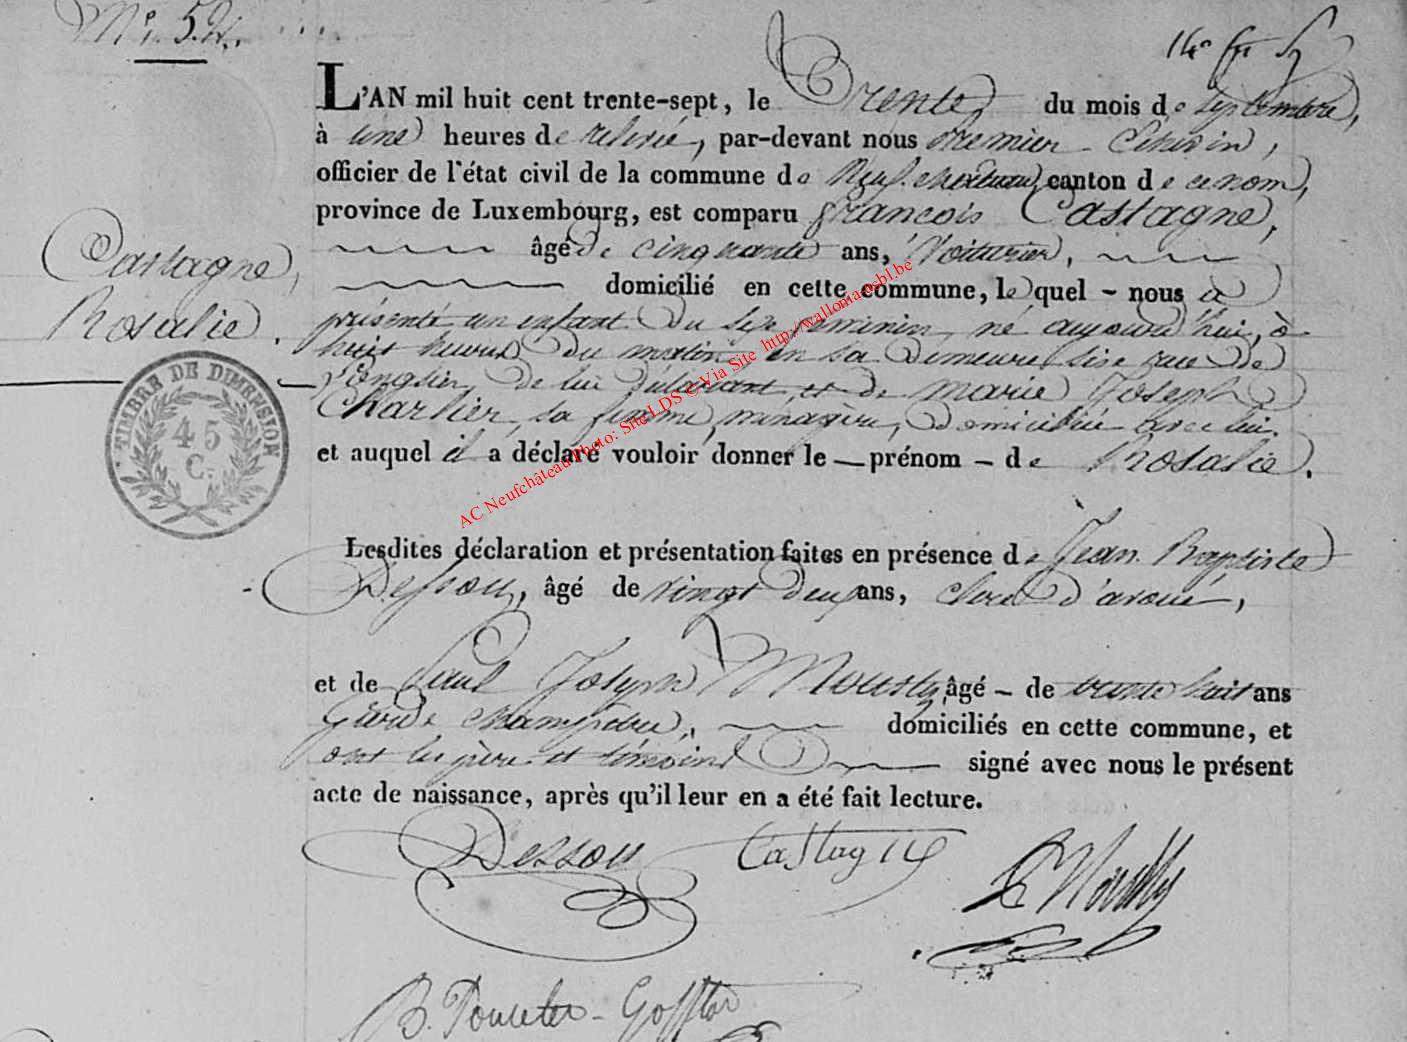 N° 52.
L'AN mil huit cent trente-sept, le Trente du mois de septembre,
à une heures de relevée, par-devant nous Premier Echevin,
officier de l'état civil de la commune de Neufchateau, canton de ce nom,
province de Luxembourg, est comparu françois Castagne,
âgé de cinquante ans, Voiturier,
domicilié en cette commune, lequel – nous a
présenté un enfant du sexe féminin, né aujourd'hui, à
huit heures du matin en sa demeure sise rue de
de lui déclarant, et de Marie Joseph
Charlier, sa femme, ménagère, domiciliée avec lui.
et auquel il a déclaré vouloir donner le — prénom – de Rosalie.
Castagne,
Rosalie.
TIMBRE DE DIMENSION
45
C.
Lesdites déclaration et présentation faites en présence de Jean Baptiste
Dessou, âgé de vingt deux ans, clerc d'avoué,
et de Paul Joseph Mousty, âgé – de trente huit ans
Garde champêtre, domiciliés en cette commune, et
ont les père et témoins signé avec nous le présent
acte de naissance, après qu'il leur en a été fait lecture.
Dessou Castagne Mousty
B. Poncelet-
AC Neufchâteau Photo: Site LDS © Via Site http://wallonia-asbl.be